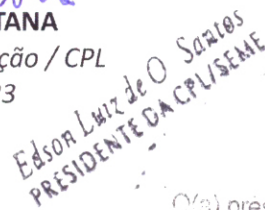 TANA
ção / CPL
3
Edson Luiz de O Santos
PRESIDENTE DA CPL/SEME
O(a) pres